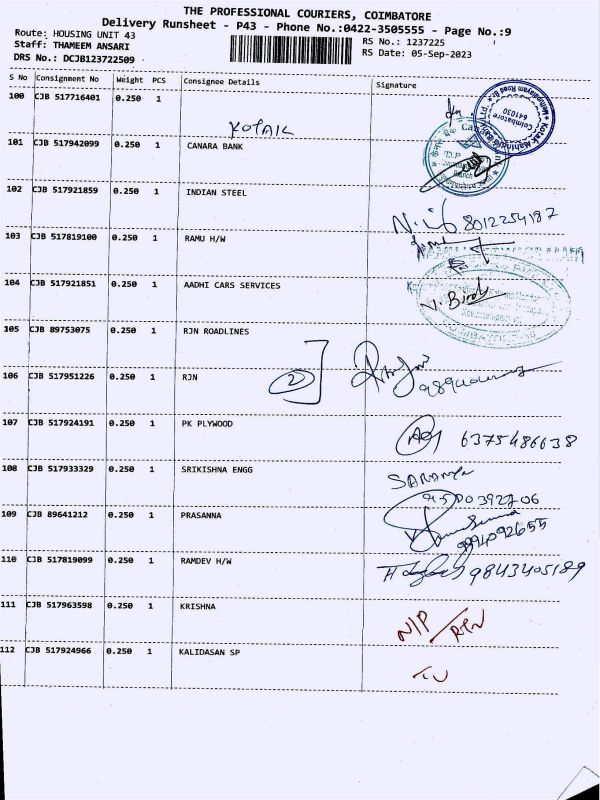 THE PROFESSIONAL COURIERS, COIMBATORE
Delivery Runsheet - P43 - Phone No.:0422-3505555 - Page No.:9
Route: HOUSING UNIT 43
Staff: THAMEEM ANSARI
DRS No.: DCJB123722509
RS No.: 1237225
RS Date: 05-Sep-2023
S No Consignment No Weight PCS Consignee Details Signature
100 CJB 517716401 0.250 1
KOTAK
Coimbatore
641030
101 CJB 517942099 0.250 1 CANARA BANK
102 CJB 517921859 0.250 1 INDIAN STEEL
8012254187
103 CJB 517819100 0.250 1 RAMU H/W
104 CJB 517921851 0.250 1 AADHI CARS SERVICES
105 CJB 89753075 0.250 1 RJN ROADLINES
106 CJB 517951226 0.250 1 RJN
2
107 CJB 517924191 0.250 1 PK PLYWOOD
6375486638
108 CJB 517933329 0.250 1 SRIKISHNA ENGG
SARANYA
109 CJB 89641212 0.250 1 PRASANNA
9994092655
110 CJB 517819099 0.250 1 RAMDEV H/W
9843405189
111 CJB 517963598 0.250 1 KRISHNA
N/P
112 CJB 517924966 0.250 1 KALIDASAN SP